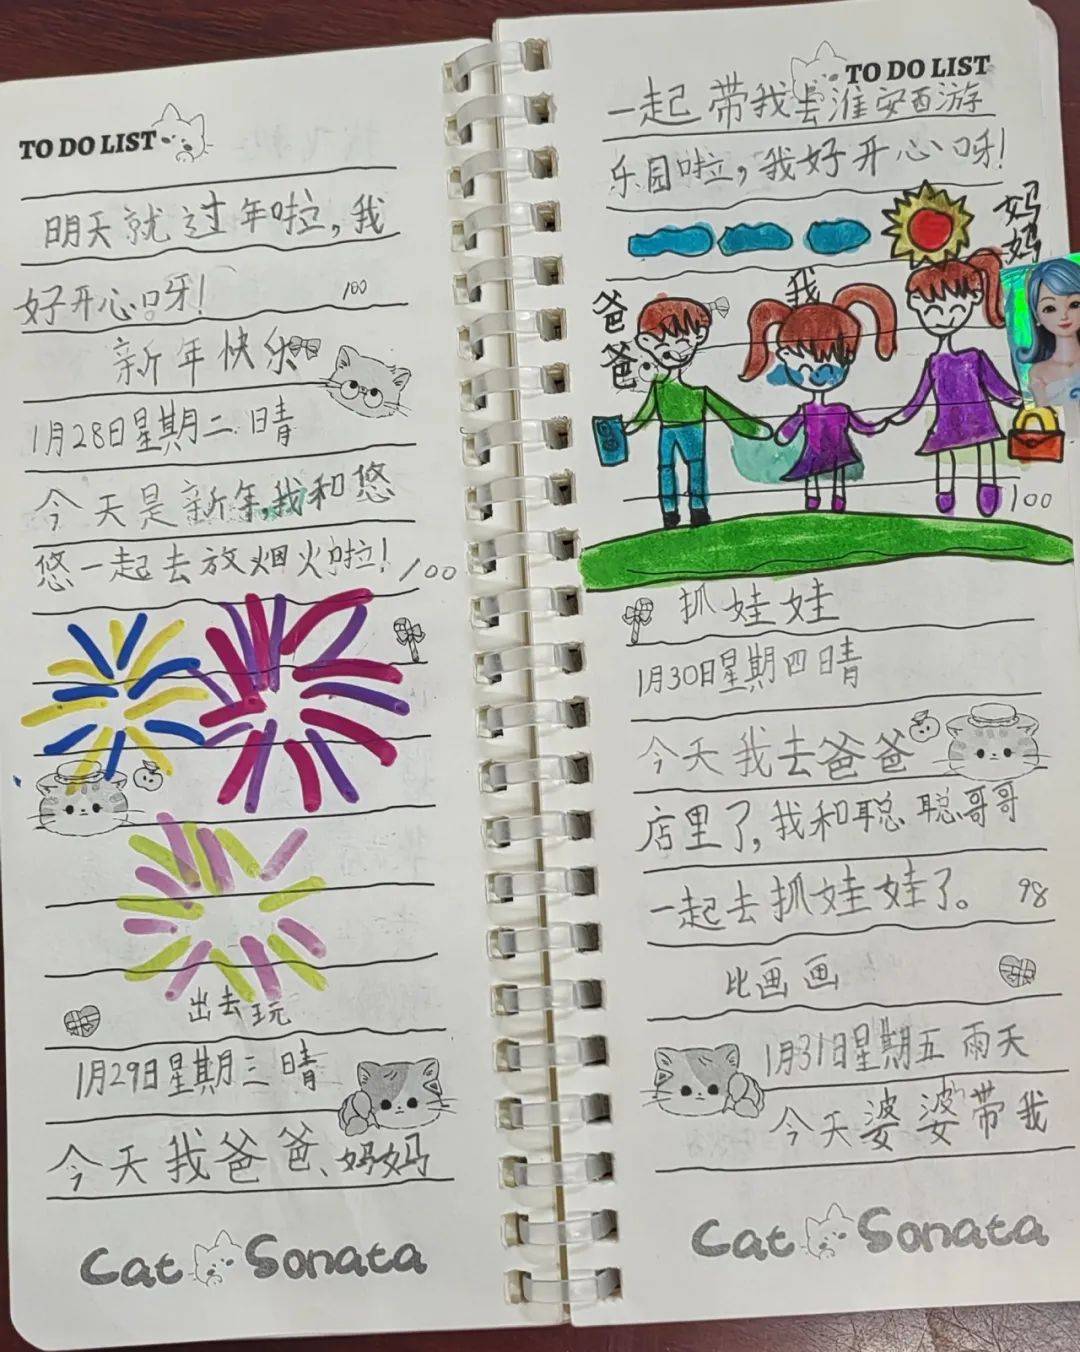 TO DO LIST
明天就过年啦,我
好开心呀! 100
新年快乐
1月28日星期二 晴
今天是新年,我和悠
悠一起去放烟火啦! 100
出去玩
1月29日星期三 晴
今天我爸爸、妈妈
Cat Sonata
TO DO LIST
一起带我去淮安西游
乐园啦,我好开心呀!
妈妈
我
爸爸
100
抓娃娃
1月30日星期四 晴
今天我去爸爸
店里了,我和聪聪哥哥
一起去抓娃娃了。 98
比画画
1月31日星期五 雨天
今天婆婆带我
Cat Sonata